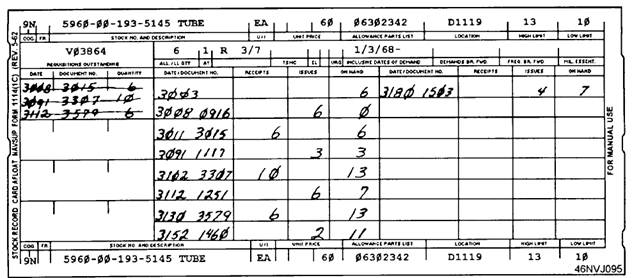 9N 5960-00-193-5145 TUBE EA 60 06302342 D1119 13 10
COG FR STOCK NO. AND DESCRIPTION U/I UNIT PRICE ALLOWANCE PARTS LIST LOCATION HIGH LIMIT LOW LIMIT
V03864 6 1 R 3/7 1/3/68-
REQUISITIONS OUTSTANDING ALL./ILL QTY AT TSMC EL URG INCLUSIVE DATES OF DEMAND DEMANDS BR. FWD FREQ. BR. FWD MIL. ESSENT.
DATE DOCUMENT NO. QUANTITY DATE/DOCUMENT NO. RECEIPTS ISSUES ON HAND DATE/DOCUMENT NO. RECEIPTS ISSUES ON HAND
3008 3015 6 3003 6 3180 1503 4 7
3091 3307 10
3112 3579 6 3008 0916 6 0
3011 3015 6 6
3091 1117 3 3
3102 3307 10 13
3112 1251 6 7
3130 3579 6 13
3152 1460 2 11
COG FR STOCK NO AND DESCRIPTION U/I UNIT PRICE ALLOWANCE PARTS LIST LOCATION HIGH LIMIT LOW LIMIT
9N 5960-00-193-5145 TUBE EA 60 06302342 D1119 13 10
STOCK RECORD CARD AFLOAT NAVSUP FORM 1114(1C) (REV. 5-62)
FOR MANUAL USE
46NVJ095